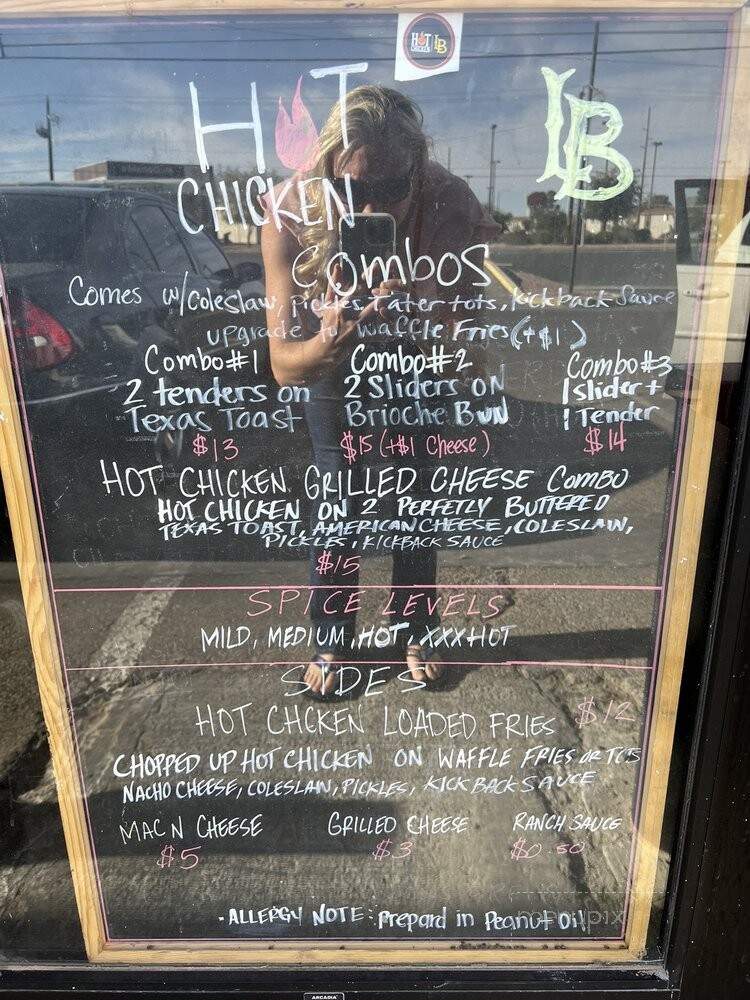 HOT CHICKEN LB
HOT
CHICKEN
LB
COMBOS
Comes w/Coleslaw, pickles, Tater tots, kickback Sauce
upgrade to waffle Fries (+$1)
Combo#1
2 tenders on
Texas Toast
$13
Combo#2
2 Sliders ON
Brioche Bun
$15 (+$1 Cheese)
Combo#3
1 slider +
1 Tender
$14
HOT CHICKEN GRILLED CHEESE COMBO
HOT CHICKEN ON 2 PERFETLY BUTTERED
TEXAS TOAST, AMERICAN CHEESE, COLESLAW,
PICKLES, KICKBACK SAUCE
$15
SPICE LEVELS
MILD, MEDIUM, HOT, XXXHOT
SIDES
HOT CHCKEN LOADED FRIES $12
CHOPPED UP HOT CHICKEN ON WAFFLE FRIES OR TT'S
NACHO CHEESE, COLESLAW, PICKLES, KICKBACK SAUCE
MAC N CHEESE GRILLED CHEESE RANCH SAUCE
$5 $3 $0.50
-ALLERGY NOTE: Prepard in Peanut Oil
menupix
ARCADIA